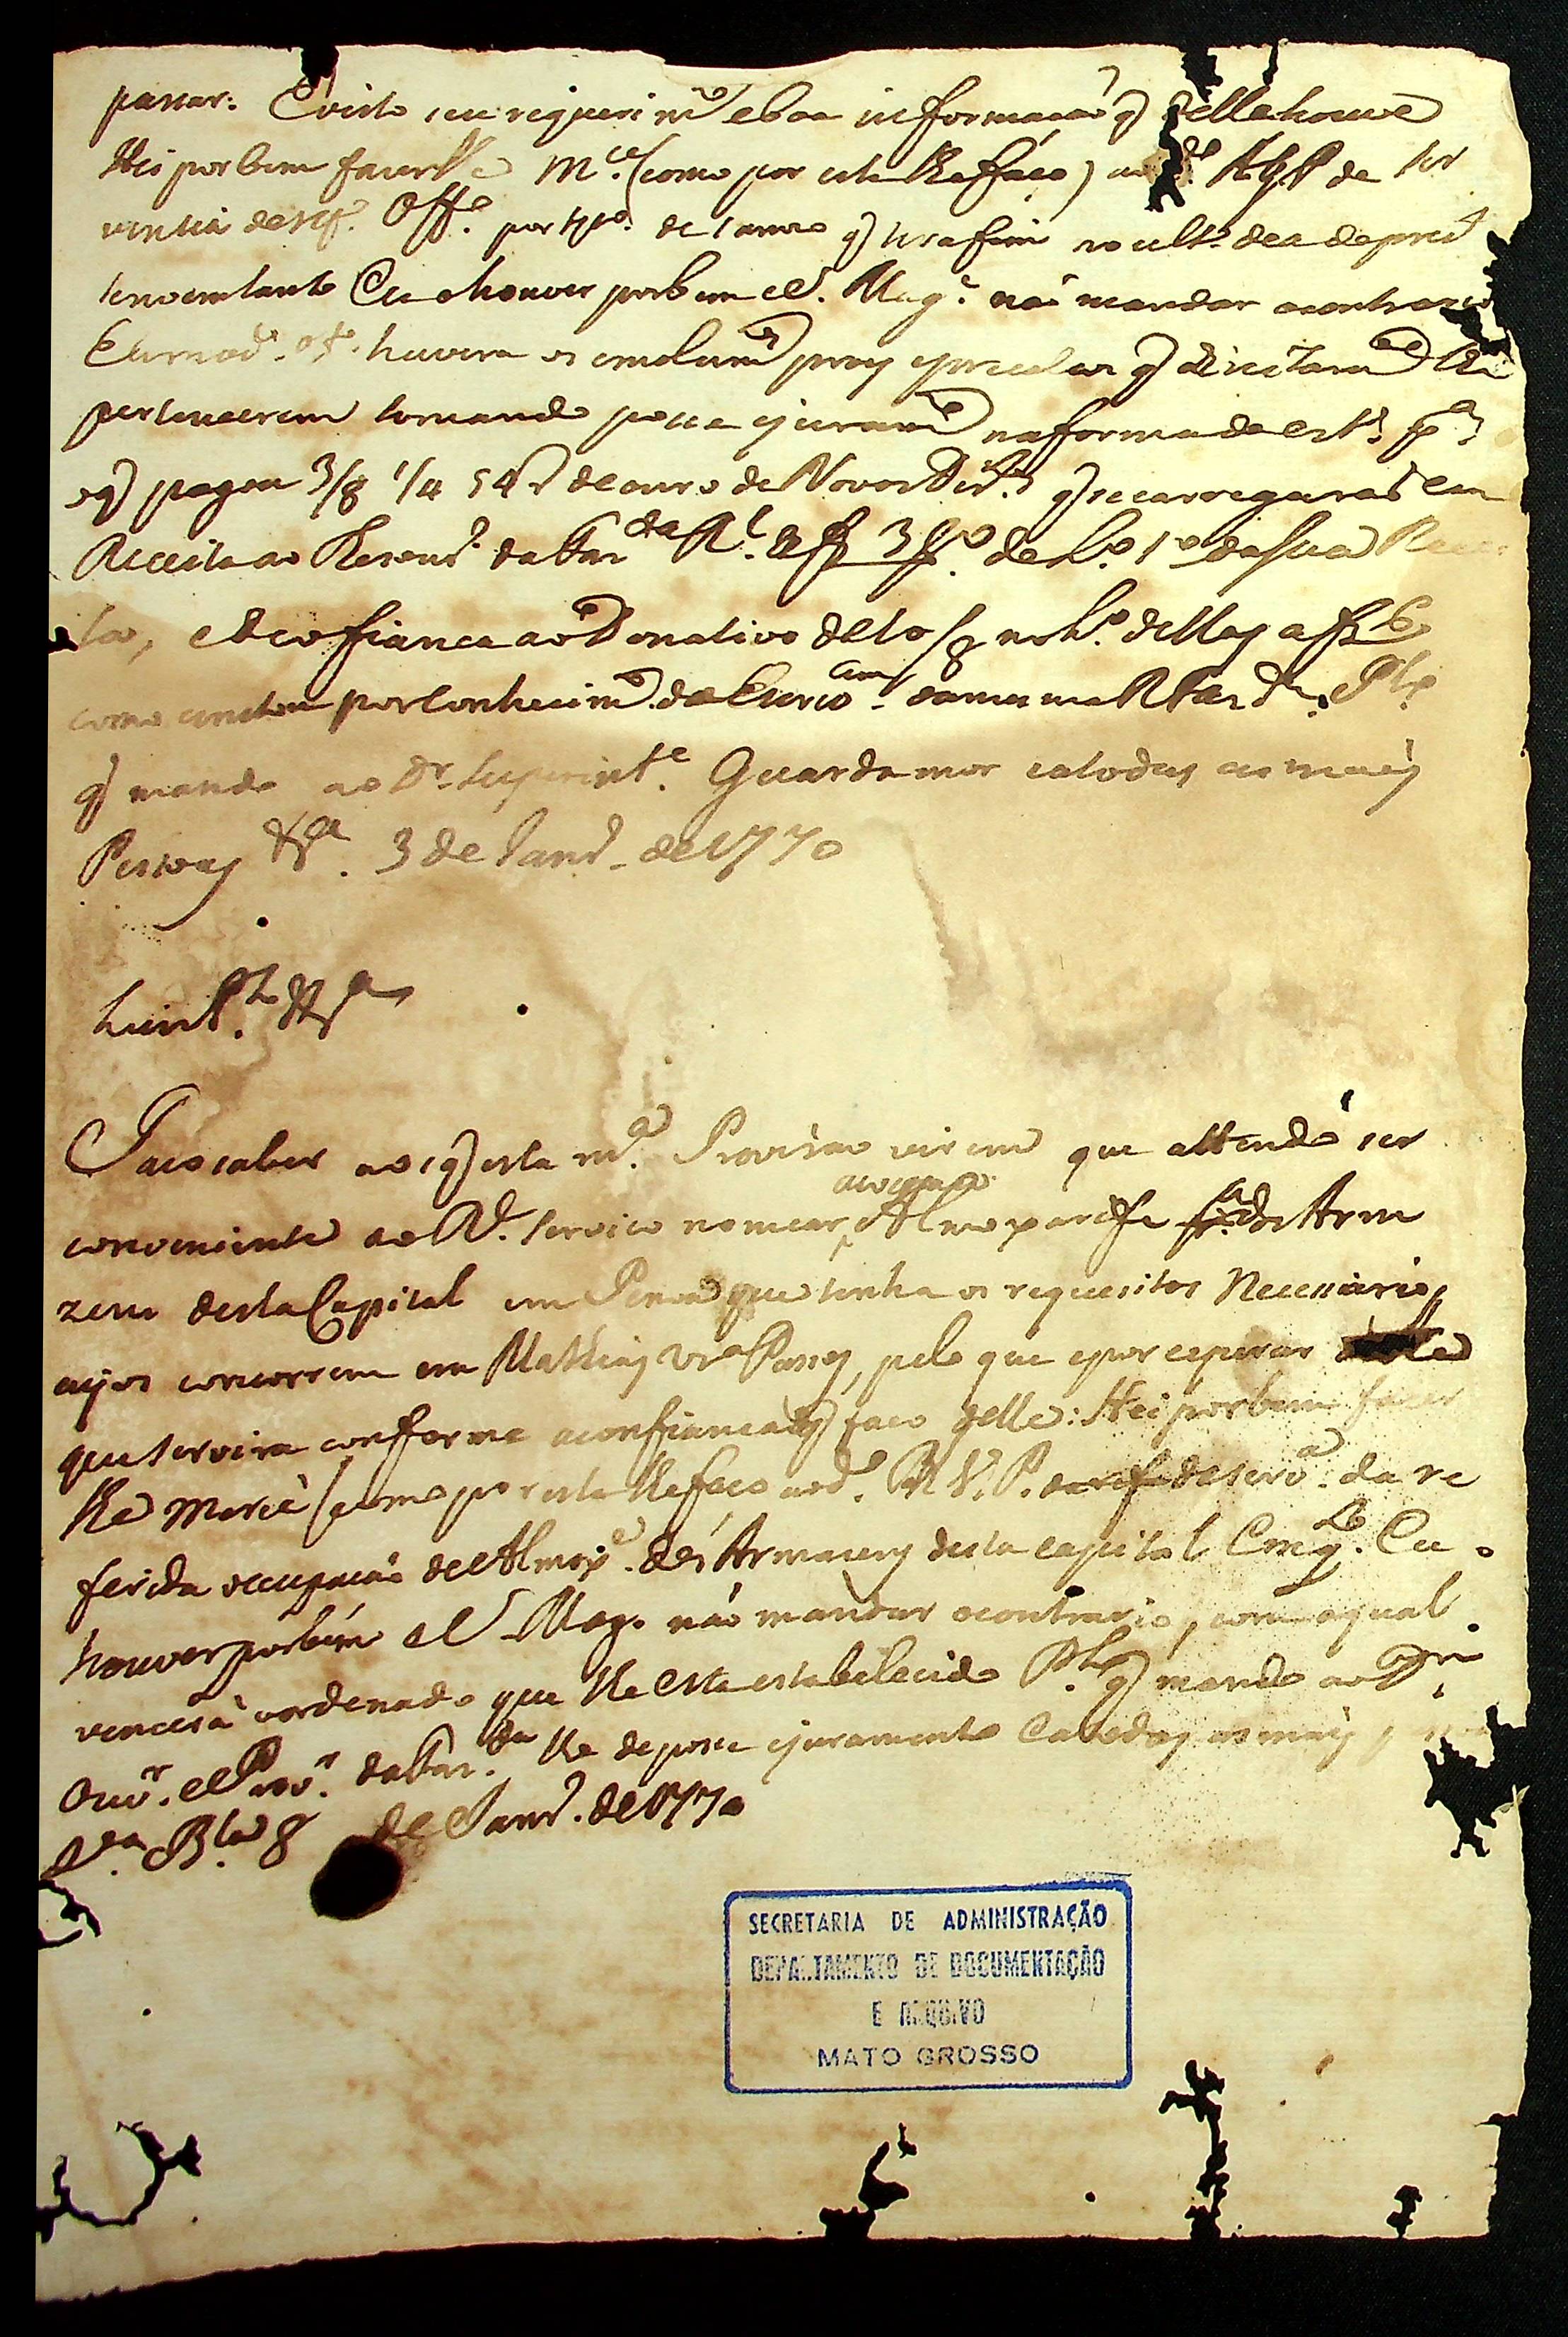 passar. E visto seu requerim.to e boa informação q̃ delle houve
Hei por bem fazer lhe M.ce (como por esta lhe faço) ao d.o de ser
ventia do ref.o Off.o por tpo. de q̃
se no emtanto Eu o houver por bem e S. Mag.e não mandar o contrario
E com o d.o of.o haverá os emolum.tos proes e precalsos q̃ direitam.te lhe
pertencerem tomando posse e juram.to na forma do est.o
o q̃ pagou 3/8 1/4 54 r de ouro de Novos Dir.tos q̃ se carregarão em
Receita ao Thesour.o da Faz.da R.l a f 3 do L.o 1.o da sua Recei
ta, e deo fiança ao Donativo de no L.o dellas a f 6
como constou por conhecim.to do Escrivam da mesma R. Fazd.a. P.lo
q̃ mando ao Dr. Superint.e Guarda mor e a todas as mais
Pessoas &.a 3 de Janr.o de 1770
Luiz P.to &.a
Faço saber aos q̃ esta m.a Provisão virem que attend.o ser
conveniente ao R. serviço nomear, Almoxarife dos Arma
zens desta Capital em Pessoa que tenha os requesitos Necessarios,
cujos concorrem em Mathias Vr.a Passos, pelo que e por esperar
que servira conforme a confiança q̃ faço delle: Hei por bem fazer
lhe Mercê (como por esta lhe faço ao d.o M. V. P. da serv.a da re
ferida occupação de Almox.e dos Armazens desta capital Emq.to Eu o
houver por bem e S. Mag.e não mandar o contrario, com a qual
vencerá o ordenado que lhe esta estabelecido P.lo q̃ mando ao D.r
Ouv.or e Prov.or da Faz.da lhe de posse e juramento E a todas as mais
V.a B.la 8 de Janr.o de 1770
SECRETARIA DE ADMINISTRAÇÃO
DEPARTAMENTO DE DOCUMENTAÇÃO
E ARQUIVO
MATO GROSSO